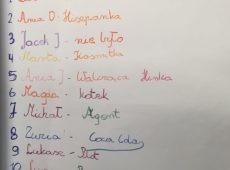 2 Ania D: Hiszpanka
3 Jacek J - nie było
4 Marta - Kosmitka
5 Ania J - Walcząca Minka
6 Magda - kotek
7 Michał - Agent
8 Zuzia - Coca Cola
9 Łukasz - Blat
10